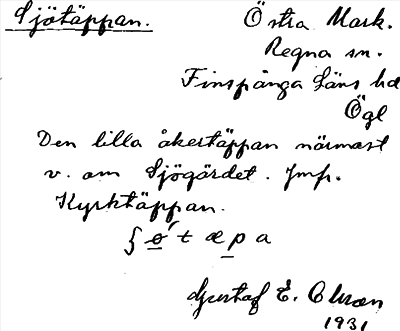 Sjötäppan.
Östra Mark.
Regna sn.
Finspånga Läns hd
Ögl
Den lilla åkertäppan närmast
v. om Sjögärdet. Jmf.
Kyrktäppan.
Gustaf E. Olsson
1931